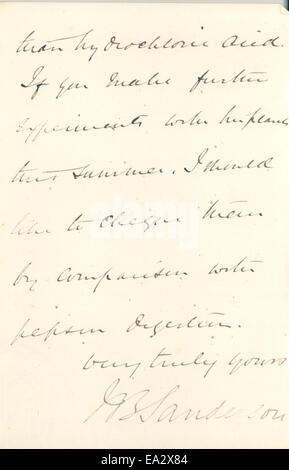 than hydrochloric acid.
If you make further
experiments with the plants
this summer, I should
like to them
by comparison with
pepsin digestion.
very truly yours
JB Sanderson
alamy stock photo
EA2X84